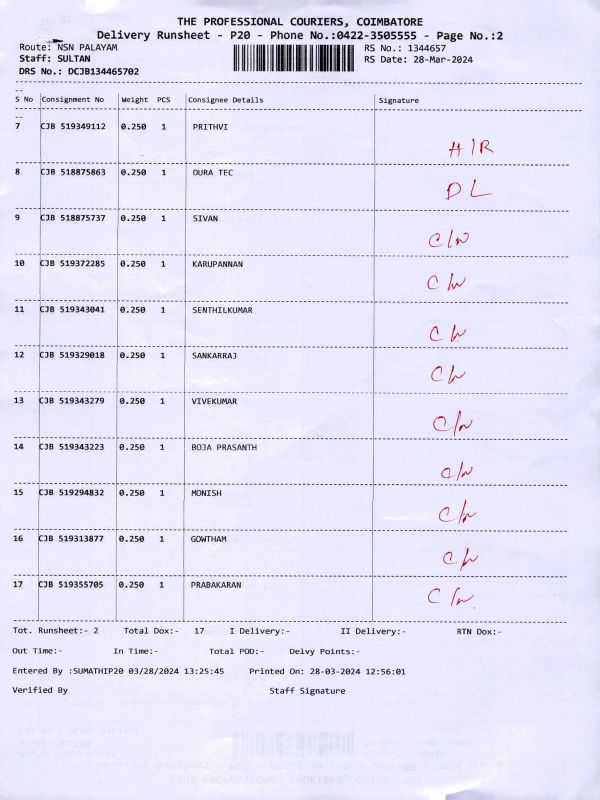 THE PROFESSIONAL COURIERS, COIMBATORE
Delivery Runsheet - P20 - Phone No.:0422-3505555 - Page No.:2
Route: NSN PALAYAM RS No.: 1344657
Staff: SULTAN RS Date: 28-Mar-2024
DRS No.: DCJB134465702
S No Consignment No Weight PCS Consignee Details Signature
7 CJB 519349112 0.250 1 PRITHVI
H/R
8 CJB 518875863 0.250 1 DURA TEC
DL
9 CJB 518875737 0.250 1 SIVAN
C/N
10 CJB 519372285 0.250 1 KARUPANNAN
C/N
11 CJB 519343041 0.250 1 SENTHILKUMAR
C/N
12 CJB 519329018 0.250 1 SANKARRAJ
C/N
13 CJB 519343279 0.250 1 VIVEKUMAR
C/N
14 CJB 519343223 0.250 1 BOJA PRASANTH
C/N
15 CJB 519294832 0.250 1 MONISH
C/N
16 CJB 519313877 0.250 1 GOWTHAM
C/N
17 CJB 519355705 0.250 1 PRABAKARAN
C/N
Tot. Runsheet:- 2 Total Dox:- 17 I Delivery:- II Delivery:- RTN Dox:-
Out Time:- In Time:- Total POD:- Delvy Points:-
Entered By :SUMATHIP20 03/28/2024 13:25:45 Printed On: 28-03-2024 12:56:01
Verified By Staff Signature